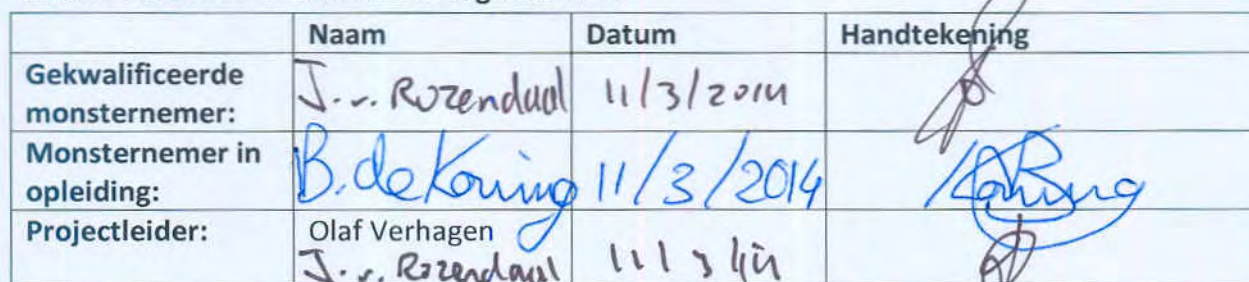 Naam Datum Handtekening
Gekwalificeerde
monsternemer: J. v. Rozendaal 11/3/2014
Monsternemer in
opleiding: B. de Koning 11/3/2014
Projectleider: Olaf Verhagen
J. v. Rozendaal 11/3/14